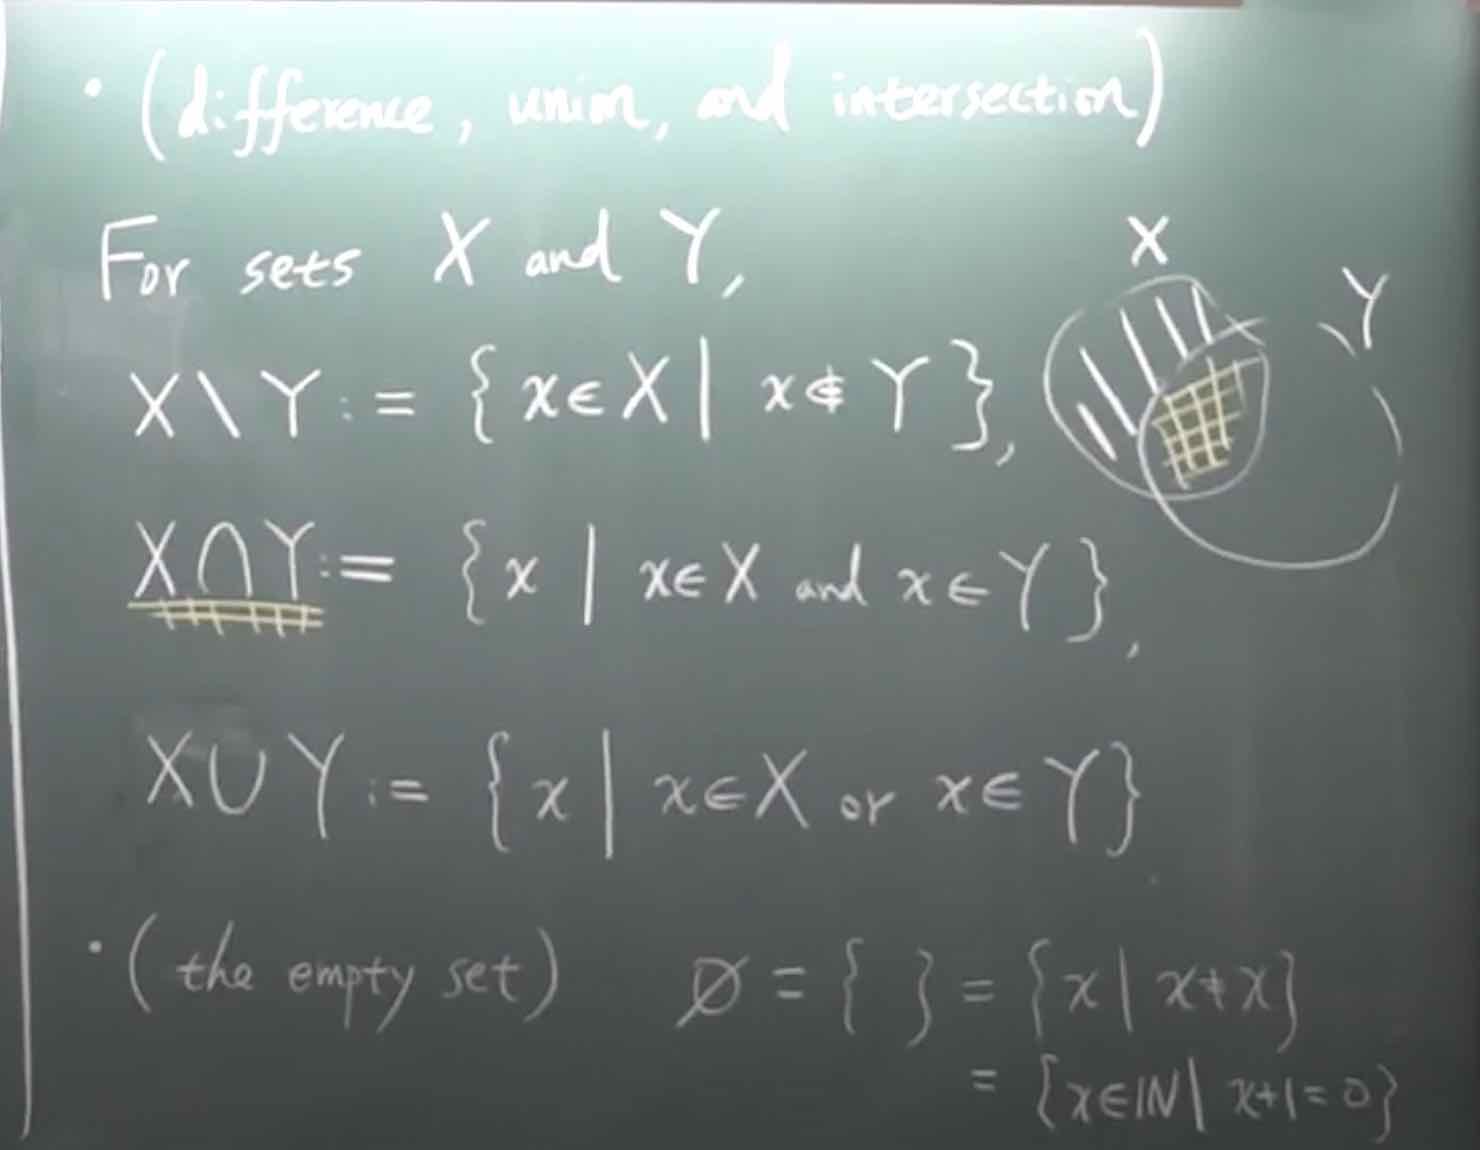 · (difference, union, and intersection)
For sets X and Y,
X \ Y := { x ∈ X | x ∉ Y },
X ∩ Y := { x | x ∈ X and x ∈ Y },
X ∪ Y := { x | x ∈ X or x ∈ Y }
X
Y
· (the empty set) ∅ = { } = { x | x ≠ x }
= { x ∈ ℕ | x+1 = 0 }